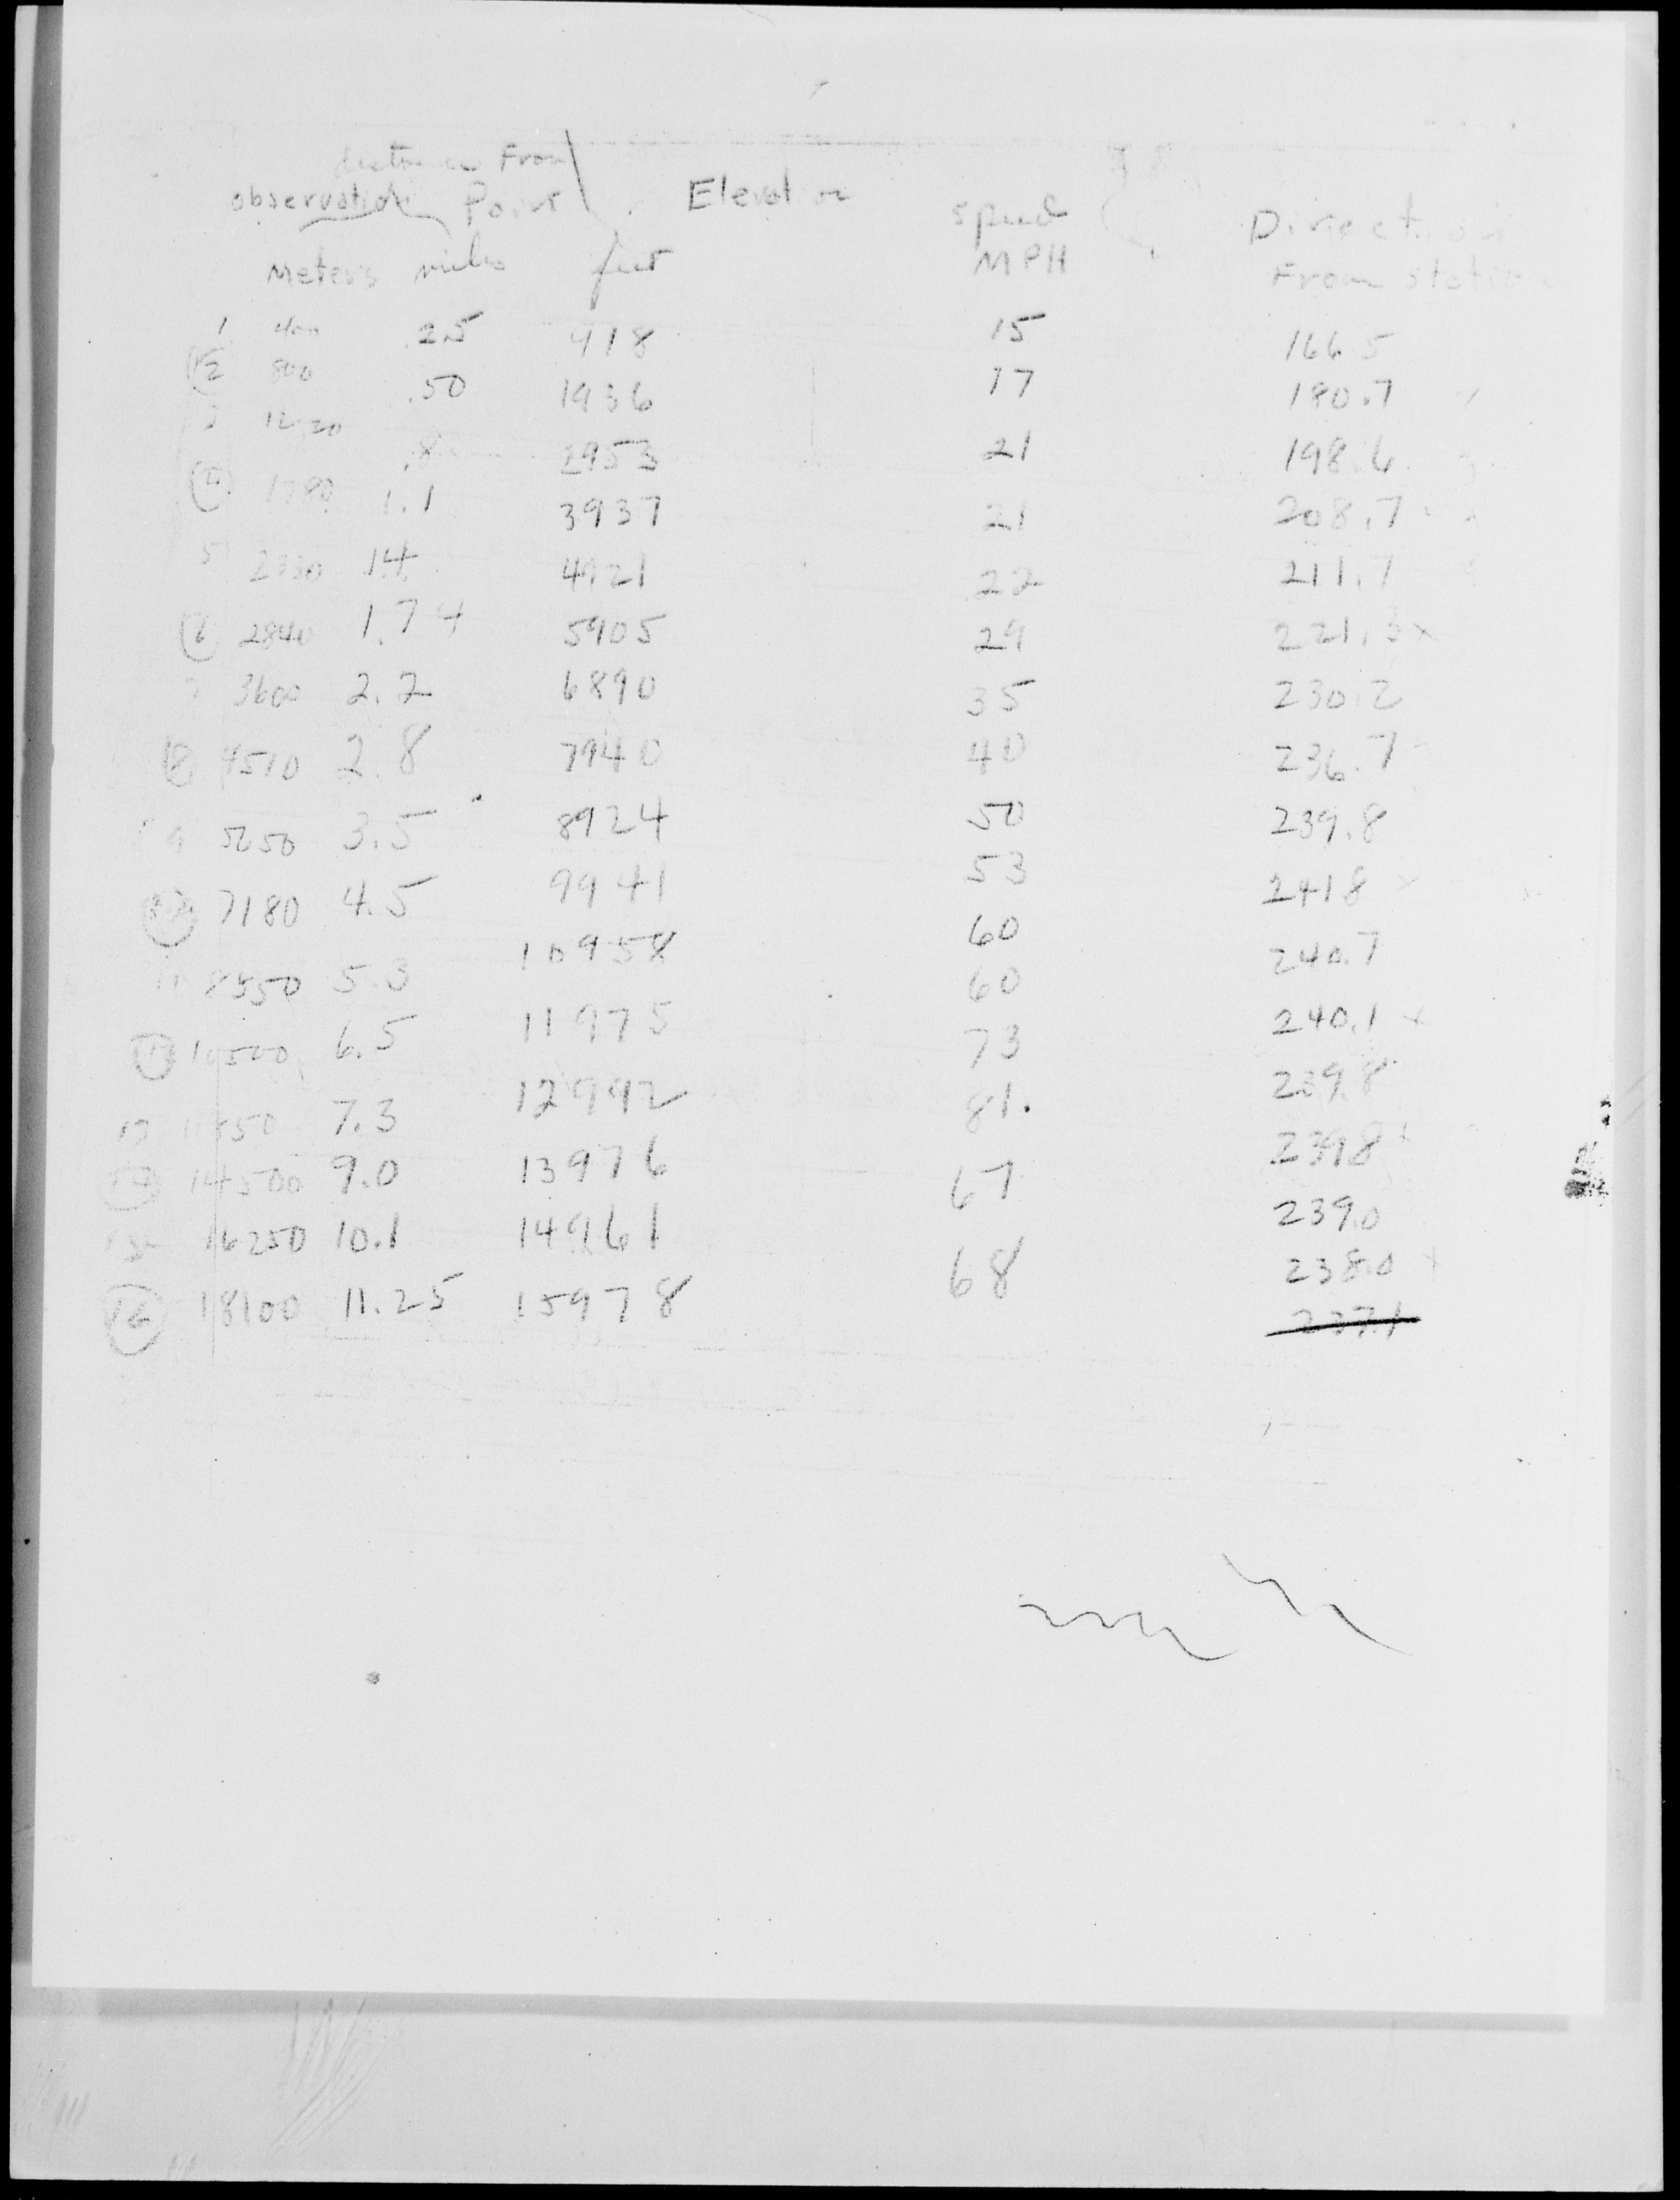 distance From
observation Point Elevation Speed Direction
Meters miles feet MPH From station
1 400 .25 918 15 166.5
2 800 .50 1936 17 190.7
3 1220 .8 2953 21 198.6
4 1780 1.1 3937 21 208.7
5 2330 1.4 4921 22 211.7
6 2840 1.74 5905 29 221.3 x
7 3600 2.2 6890 35 230.2
8 4510 2.8 7940 40 236.7
9 3.5 8924 50 239.8
7180 4.5 9941 53 241.8
11 8550 5.3 10958 60 240.7
10500 6.5 11975 60 240.1 x
13 7.3 12992 73 239.8
14 14500 9.0 13976 81. 239.8
15 16250 10.1 14961 67 239.0
16 18100 11.25 15978 68 238.0
237.1